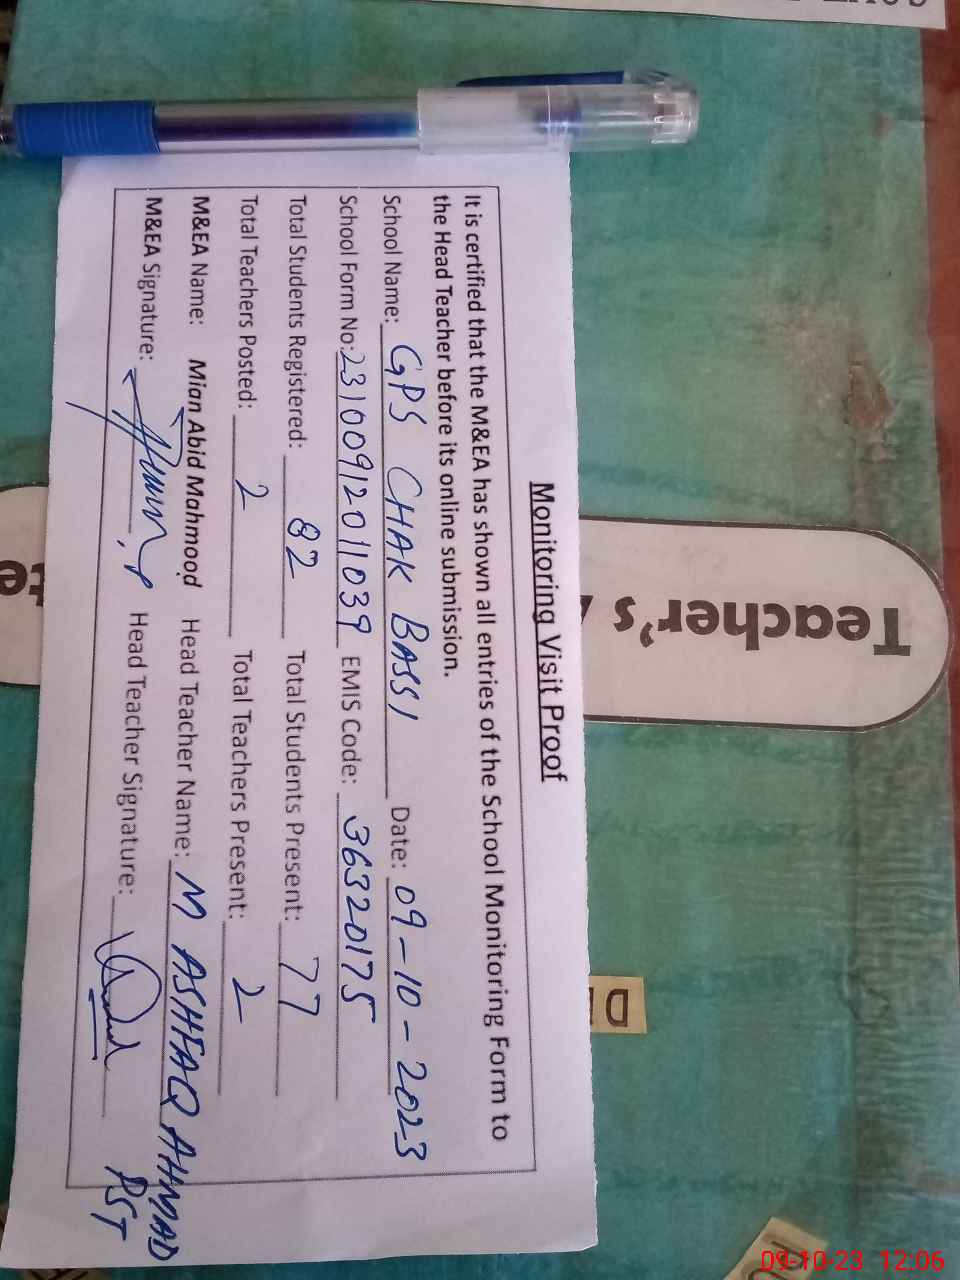 Monitoring Visit Proof
It is certified that the M&EA has shown all entries of the School Monitoring Form to
the Head Teacher before its online submission.
School Name: GPS CHAK BASSI Date: 09-10-2023
School Form No: 23100912011039 EMIS Code: 36320175
Total Students Registered: 82 Total Students Present: 77
Total Teachers Posted: 2 Total Teachers Present: 2
M&EA Name: Mian Abid Mahmood Head Teacher Name: M ASHFAQ AHMAD
M&EA Signature: Head Teacher Signature: PST
Teacher's
09-10-23 12:06